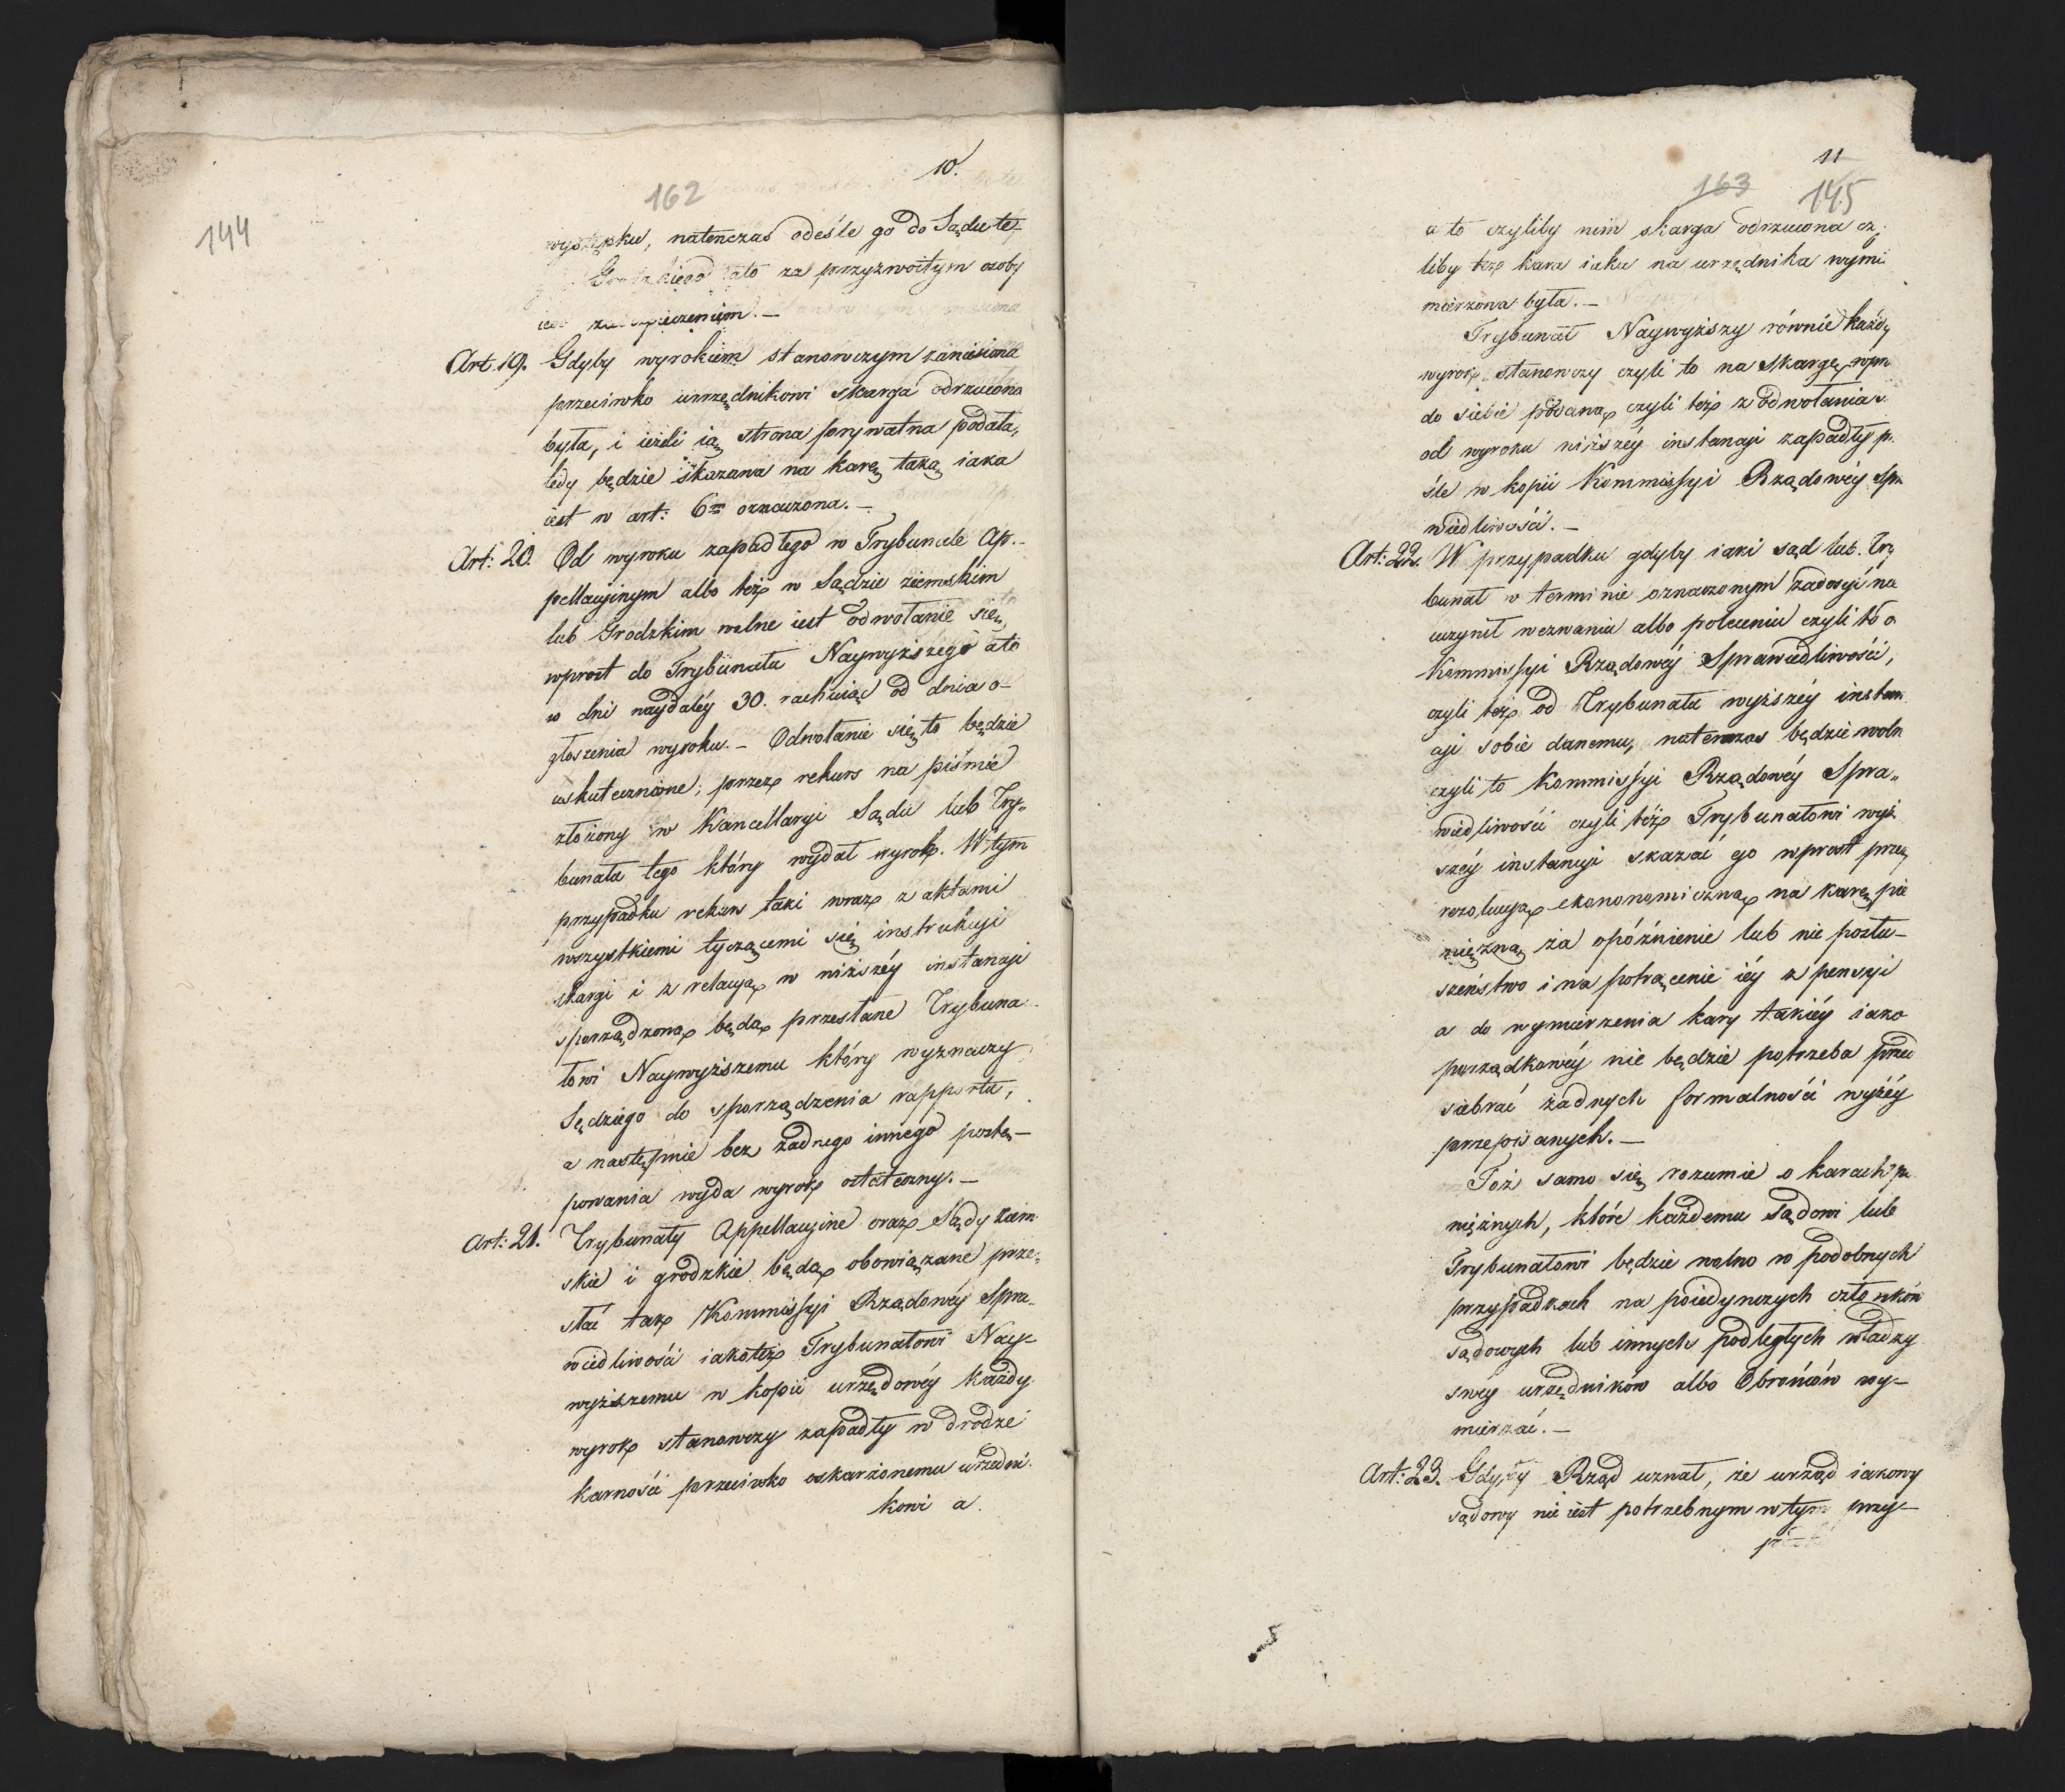 10.
162
144
występku, natenczas odeśle go do Sądu też
Grodzkiego ato za przyzwoitym osoby
iego zabezpieczeniem. —
Art 19. Gdyby wyrokiem stanowczym zaniesiona
przeciwko urzędnikowi skarga odrzucona
była, i ieżeli ią strona prywatna podała,
tedy będzie skazana na karę taką iaka
iest w art: 6m oznaczona. —
Art: 20. Od wyroku zapadłego w Trybunale Ap.
pellacyinym albo też w Sądzie ziemskim
lub Grodzkim wolne iest odwołanie się,
wprost do Trybunału Naywyższego ato
w dni naydaléy 30. rachuiąc od dnia o-
głoszenia wyroku. — Odwołanie się to będzie
uskutecznione; przez rekurs na piśmie
złożony w Kancellaryi Sądu lub Try-
bunału tego który wydał wyrok. W tym
przypadku rekurs taki wraz z aktami
wszystkiemi tyczącemi się instrukcyi
skargi i z relacyą w niższéy instancyi
sporządzoną będą przesłane Trybuna-
łowi Naywyższemu który wyznaczy
Sędziego do sporządzenia rapportu,
a następnie bez żadnego innego postę-
powania wyda wyrok ostateczny. —
Art: 21. Trybunały Appellacyine oraz Sądy ziem
skie i grodzkie będą obowiązane prze-
słać tak Kommissyi Rządowéy Spra-
wiedliwości iakoteż Trybunałowi Nay-
wyższemu w kopii urzędowéy każdy
wyrok stanowczy zapadły w drodze
karności przeciwko oskarżonemu urzedni-
kowi a
11
163
145
a to czyliby nim skarga odrzucona cz
liby też kara iaka na urzędnika wymi
mierzona była. —
Trybunał Naywyższy równie każdy
wyrok stanowczy czyli to na skargę wpr
do siebie podaną czyli też z odwołania s
od wyroku niższéy instancyi zapadły p.
śle w kopii Kommissyi Rządowéy Spr
wiedliwości. —
Art: 22. W przypadku gdyby iaki sąd lub Try
bunał w terminie oznaczonym zadosyć nie
uczynił wezwaniu albo poleceniu czyli to o
Kommissyi Rządowéy Sprawiedliwości,
czyli też od Trybunału wyższéy instan
cyi sobie danemu, natenczas będzie woln
czyli to Kommissyi Rządowéy Spra-
wiedliwości czyli też Trybunałowi wyż
széy instancyi skazać go wprost przez
rezolucyą ekonomiczną na karę pie
niężną za opóźnienie lub nie posłu-
szeństwo i na potrącenie iéy z pensyi
a do wymierzenia kary takiéy iako
porządkowéy nie będzie potrzeba przed
siebrać żadnych formalności wyżéy
przepisanych. —
Toż samo się rozumie o karach pie
niężnych, które każdemu sądowi lub
Trybunałowi będzie wolno w podobnych
przypadkach na poiedynczych członków
sądowych lub innych podległych władzy
swéy urzędników albo Obrońców wy-
mierzać. —
Art: 23. Gdyby Rząd uznał, że urząd iakowy
sądowy nie iest potrzebnym w tym przy-